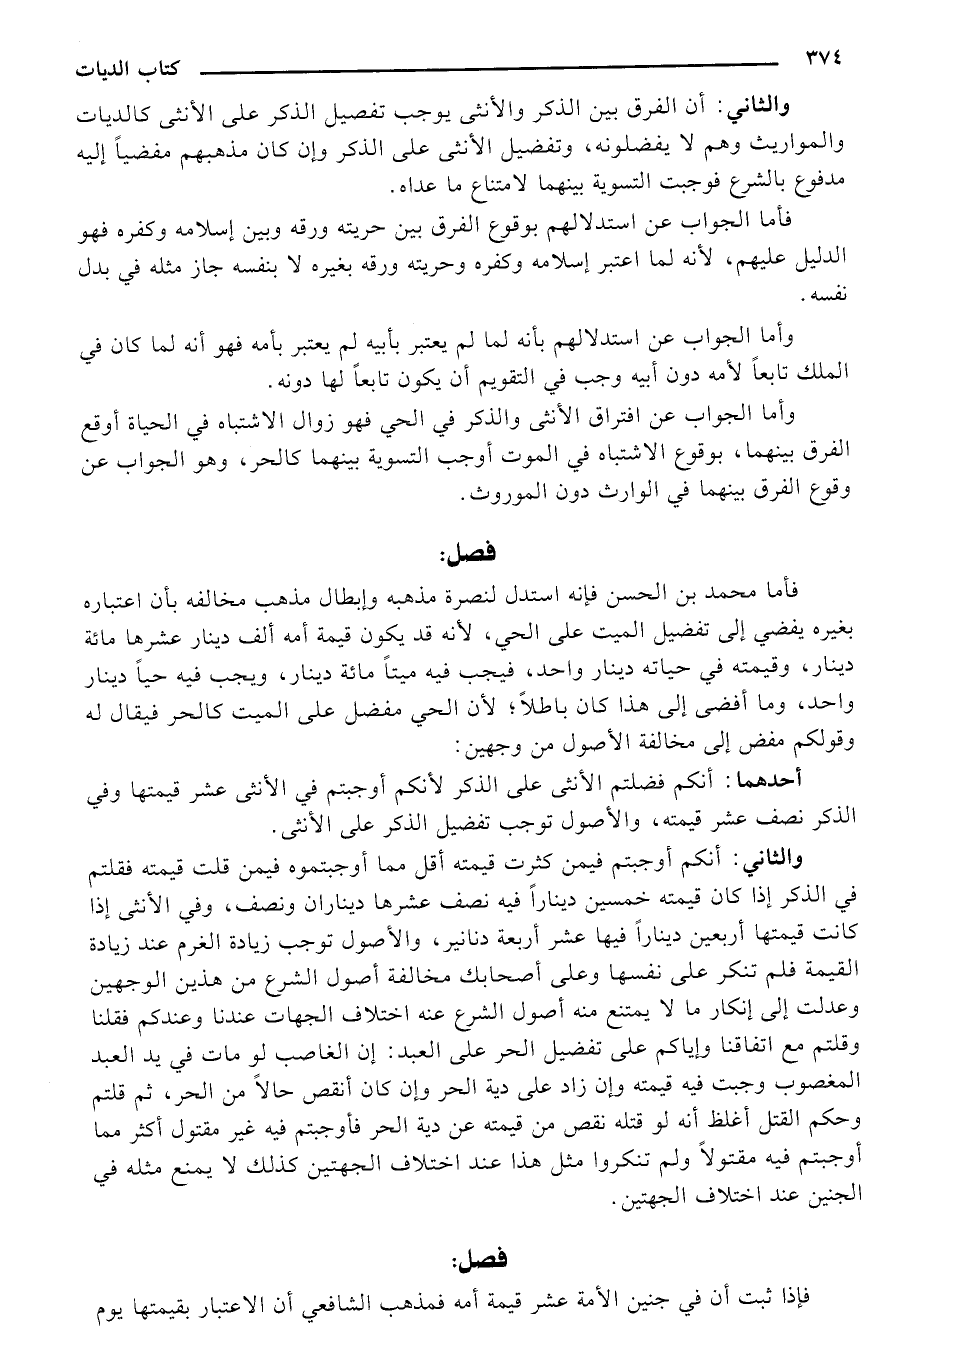 ٣٧٤
كتاب الديات
والثاني: أن الفرق بين الذكر والأنثى يوجب تفصيل الذكر على الأنثى كالديات
والمواريث وهم لا يفضلونه، وتفضيل الأنثى على الذكر وإن كان مذهبهم مفضياً إليه
مدفوع بالشرع فوجبت التسوية بينهما لامتناع ما عداه.
فأما الجواب عن استدلالهم بوقوع الفرق بين حريته ورقه وبين إسلامه وكفره فهو
الدليل عليهم، لأنه لما اعتبر إسلامه وكفره وحريته ورقه بغيره لا بنفسه جاز مثله في بدل
نفسه.
وأما الجواب عن استدلالهم بأنه لما لم يعتبر بأبيه لم يعتبر بأمه فهو أنه لما كان في
الملك تابعاً لأمه دون أبيه وجب في التقويم أن يكون تابعاً لها دونه.
وأما الجواب عن افتراق الأنثى والذكر في الحي فهو زوال الاشتباه في الحياة أوقع
الفرق بينهما، بوقوع الاشتباه في الموت أوجب التسوية بينهما كالحر، وهو الجواب عن
وقوع الفرق بينهما في الوارث دون الموروث.
فصل:
فأما محمد بن الحسن فإنه استدل لنصرة مذهبه وإبطال مذهب مخالفه بأن اعتباره
بغيره يفضي إلى تفضيل الميت على الحي، لأنه قد يكون قيمة أمه ألف دينار عشرها مائة
دينار، وقيمته في حياته دينار واحد، فيجب فيه ميتاً مائة دينار، ويجب فيه حياً دينار
واحد، وما أفضى إلى هذا كان باطلاً؛ لأن الحي مفضل على الميت كالحر فيقال له
وقولكم مفض إلى مخالفة الأصول من وجهين:
أحدهما: أنكم فضلتم الأنثى على الذكر لأنكم أوجبتم في الأنثى عشر قيمتها وفي
الذكر نصف عشر قيمته، والأصول توجب تفضيل الذكر على الأنثى.
والثاني: أنكم أوجبتم فيمن كثرت قيمته أقل مما أوجبتموه فيمن قلت قيمته فقلتم
في الذكر إذا كان قيمته خمسين ديناراً فيه نصف عشرها ديناران ونصف، وفي الأنثى إذا
كانت قيمتها أربعين ديناراً فيها عشر أربعة دنانير، والأصول توجب زيادة الغرم عند زيادة
القيمة فلم تنكر على نفسها وعلى أصحابك مخالفة أصول الشرع من هذين الوجهين
وعدلت إلى إنكار ما لا يمتنع منه أصول الشرع عنه اختلاف الجهات عندنا وعندكم فقلنا
وقلتم مع اتفاقنا وإياكم على تفضيل الحر على العبد: إن الغاصب لو مات في يد العبد
المغصوب وجبت فيه قيمته وإن زاد على دية الحر وإن كان أنقص حالاً من الحر، ثم قلتم
وحكم القتل أغلظ أنه لو قتله نقص من قيمته عن دية الحر فأوجبتم فيه غير مقتول أكثر مما
أوجبتم فيه مقتولاً ولم تنكروا مثل هذا عند اختلاف الجهتين كذلك لا يمنع مثله في
الجنين عند اختلاف الجهتين.
فصل:
فإذا ثبت أن في جنين الأمة عشر قيمة أمه فمذهب الشافعي أن الاعتبار بقيمتها يوم